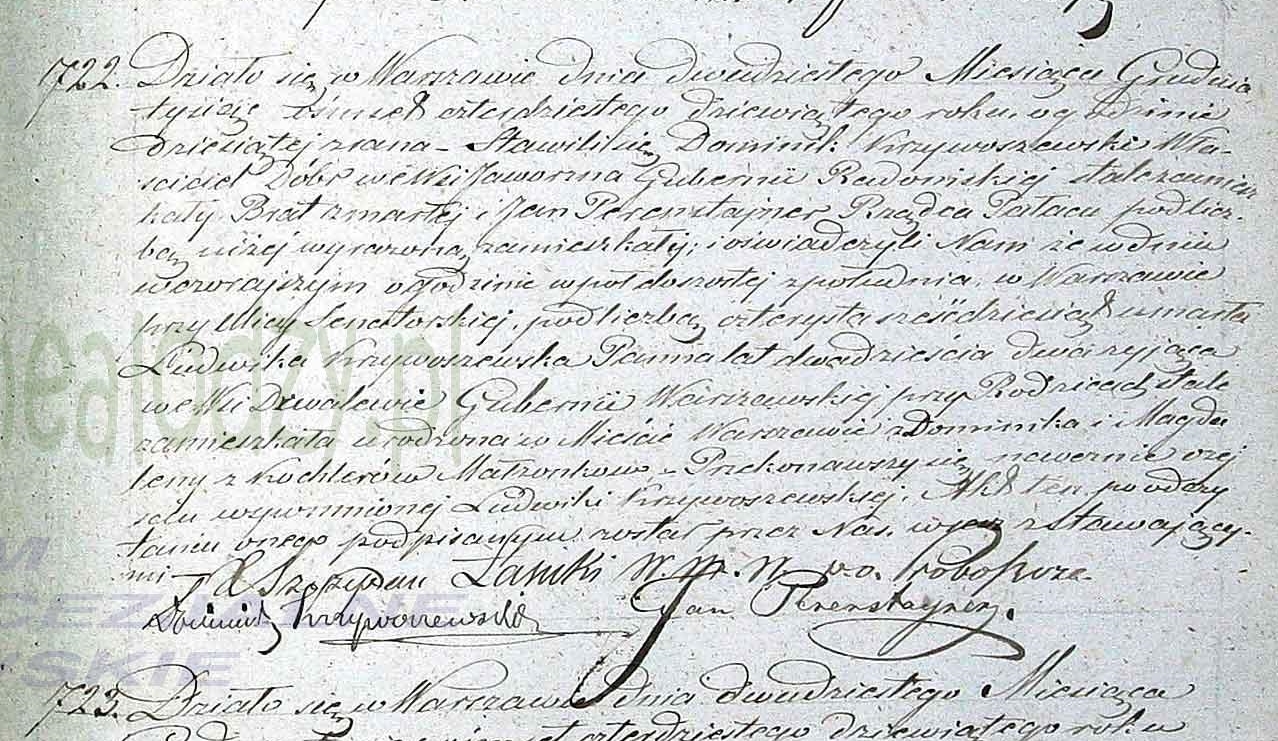 722. Działo się w Warszawie dnia dwudziestego Miesiąca Grudnia
tysiąc ośmset czterdziestego dziewiątego roku o godzinie
dziesiątej zrana – Stawili się Dominik Krzywoszewski Wła-
ściciel Dóbr we Wsi Jaworzna Gubernii Radomskiej stale zamiesz
kały Brat zmarłej i Jan Perensztajner Rządca Pałacu pod licz-
bą niżej wyrażoną zamieszkały; i oświadczyli Nam że w dniu
wczorajszym o godzinie wpół do szóstej z południa, w Warszawie
przy Ulicy Senatorskiej, pod liczbą czterysta sześćdziesiąt umarła
Ludwika Krzywoszewska Panna lat dwadzieścia dwa żyjąca
we Wsi Gubernii Warszawskiej przy Rodzicach stale
zamieszkała urodzona w Mieście Warszawie z Dominika i Magda
leny z Kochlerów Małżonków – Przekonawszy się naocznie o zej
ściu wspomnionej Ludwiki Krzywoszewskiej. Akt ten po odczy
taniu onego podpisanym został przez Nas, wraz z stawający-
mi – X Szczepan W. M. N. Proboszcza
Dominik Krzywoszewski Jan Perensztayner.
723. Działo się w Warszawie dnia dwudziestego Miesiąca
czterdziestego dziewiątego roku
nealodzy.pl